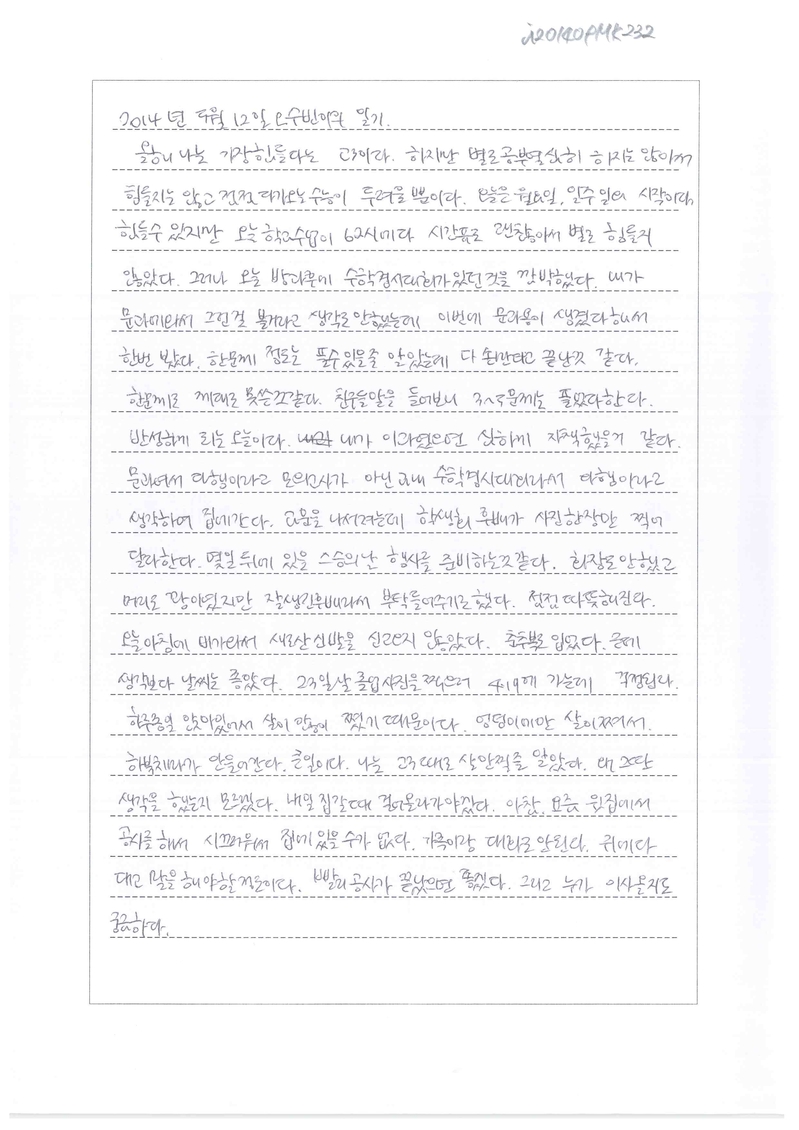 i20140PMK232
2014년 5월 12일 오수빈이의 일기.
올해 나는 가장 힘들다는 고3이다. 하지만 별로 공부열심히 하지는 않아서
힘들지는 않고 점점 다가오는 수능이 두려울 뿐이다. 오늘은 월요일, 일주일의 시작이다.
힘들수 있지만 오늘 학교수업이 6교시에다 시간표도 괜찮아서 별로 힘들지
않았다. 그러나 오늘 방과후에 수학경시대회가 있던 것을 깜박했다. 내가
문과에와서 그런걸 볼거라고 생각도 안했는데 이번에 문과용이 생겼다해서
한번 봤다. 한문제 정도는 풀수 있을줄 알았는데 다 못한다고 끝난것 같다.
한문제도 제대로 못쓴것같다. 친구들말을 들어보니 3~5문제는 풀었다한다.
반성하게 되는 오늘이다. 내가 이과였으면 심하게 자책했을거 같다.
문과여서 다행이라고 모의고사가 아닌 교내 수학경시대회라서 다행이라고
생각하며 집에간다. 교문을 나서려는데 학생회 후배가 사진한장만 찍어
달라한다. 몇일뒤에 있을 스승의 날 행사를 준비하는것 같다. 화장도 안했고
머리도 망아됐지만 잘생긴후배라서 부탁들어주기로했다. 점점 따뜻해진다.
오늘아침에 비가와서 새로산 신발을 신고오지 않았다. 춘추복도 입었다. 근데
생각보다 날씨는 좋았다. 23일날 졸업사진을 찍으러 419에 가는데 걱정된다.
하루종일 앉아있어서 살이 많이 쪘기 때문이다. 엉덩이에만 살이쪄서.
하복치마가 안들어간다. 큰일이다. 나는 고3때도 살안찔줄 알았다. 왜 그딴
생각을 했는지 모르겠다. 내일 집갈때 걸어올라가야겠다. 아참, 요즘 윗집에서
공사를 해서 시끄러워서 집에 있을 수가 없다. 가족이랑 대화도 안된다. 귀에다
대고 말을 해야할 정도이다. 빨리 공사가 끝났으면 좋겠다. 그리고 누가 이사올지도
궁금하다.